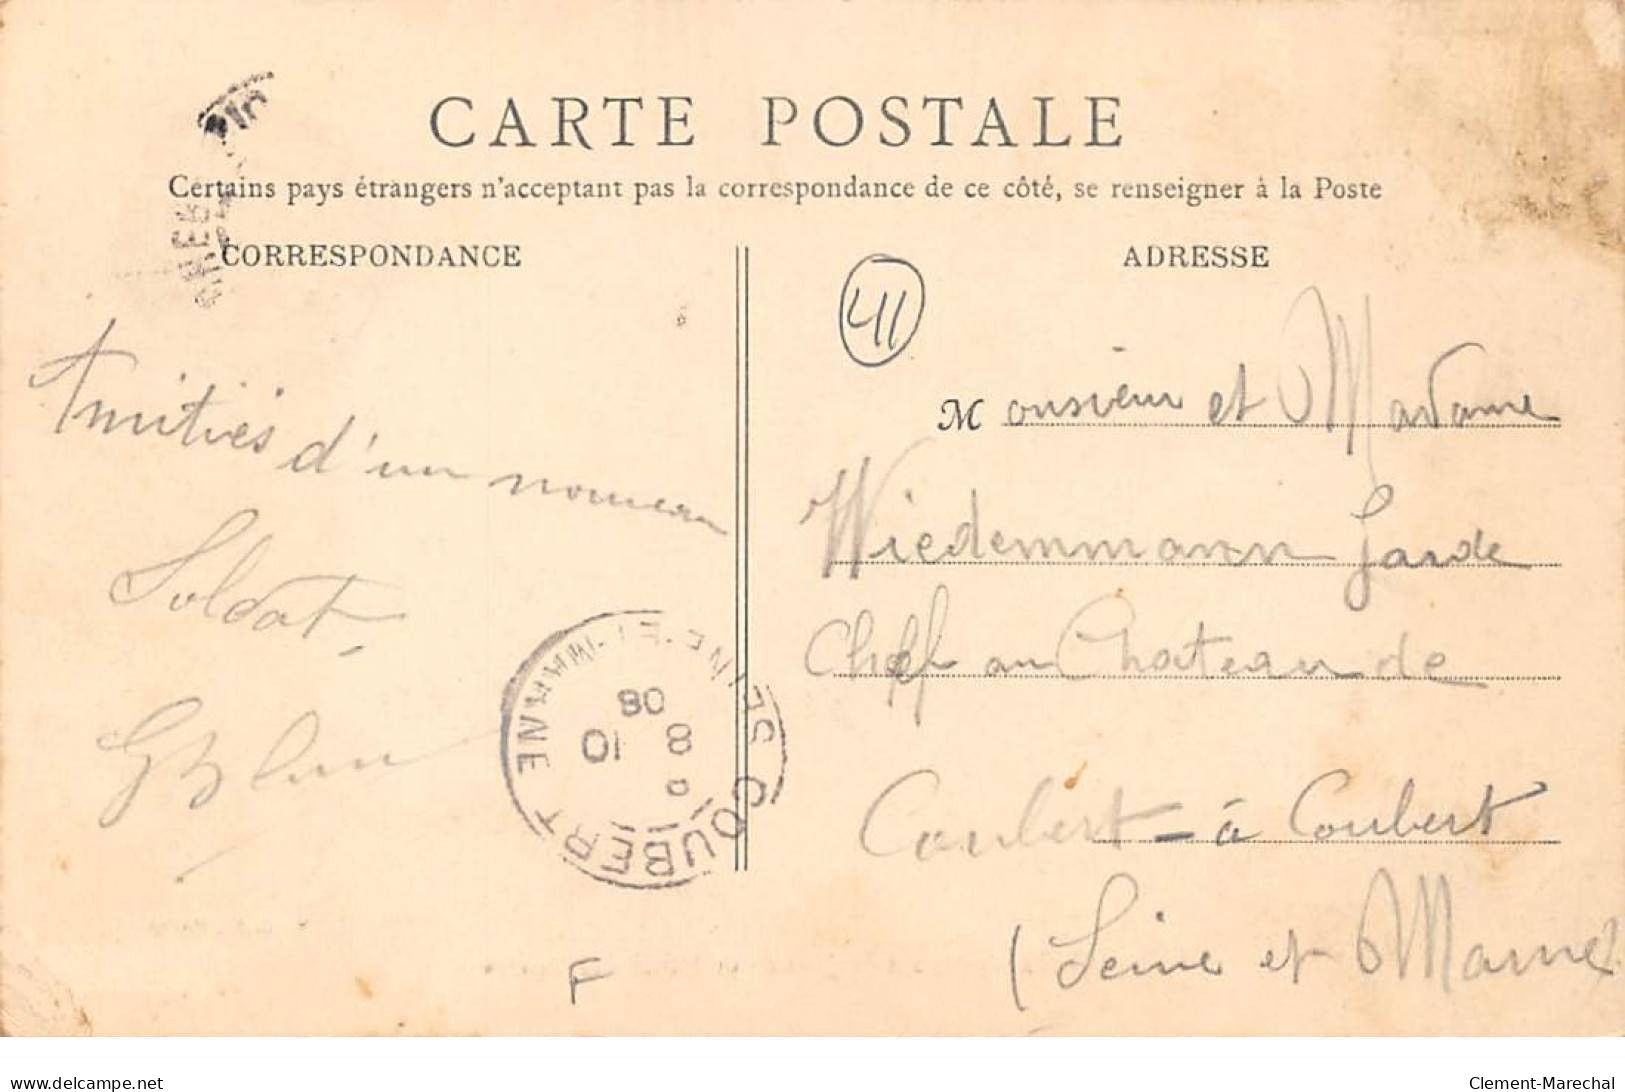 CARTE POSTALE
Certains pays étrangers n'acceptent pas la correspondance de ce côté, se renseigner à la Poste
CORRESPONDANCE
ADRESSE
41
Amitiés d'un nouveau
Soldat
Monsieur et Madame
Wiedemmann Garde
Chef au Chateau de
Coubert - à Coubert
(Seine et Marne)
COUBERT SEINE-ET-MARNE
8
10
08
F
delcampe.net
Clement-Marechal